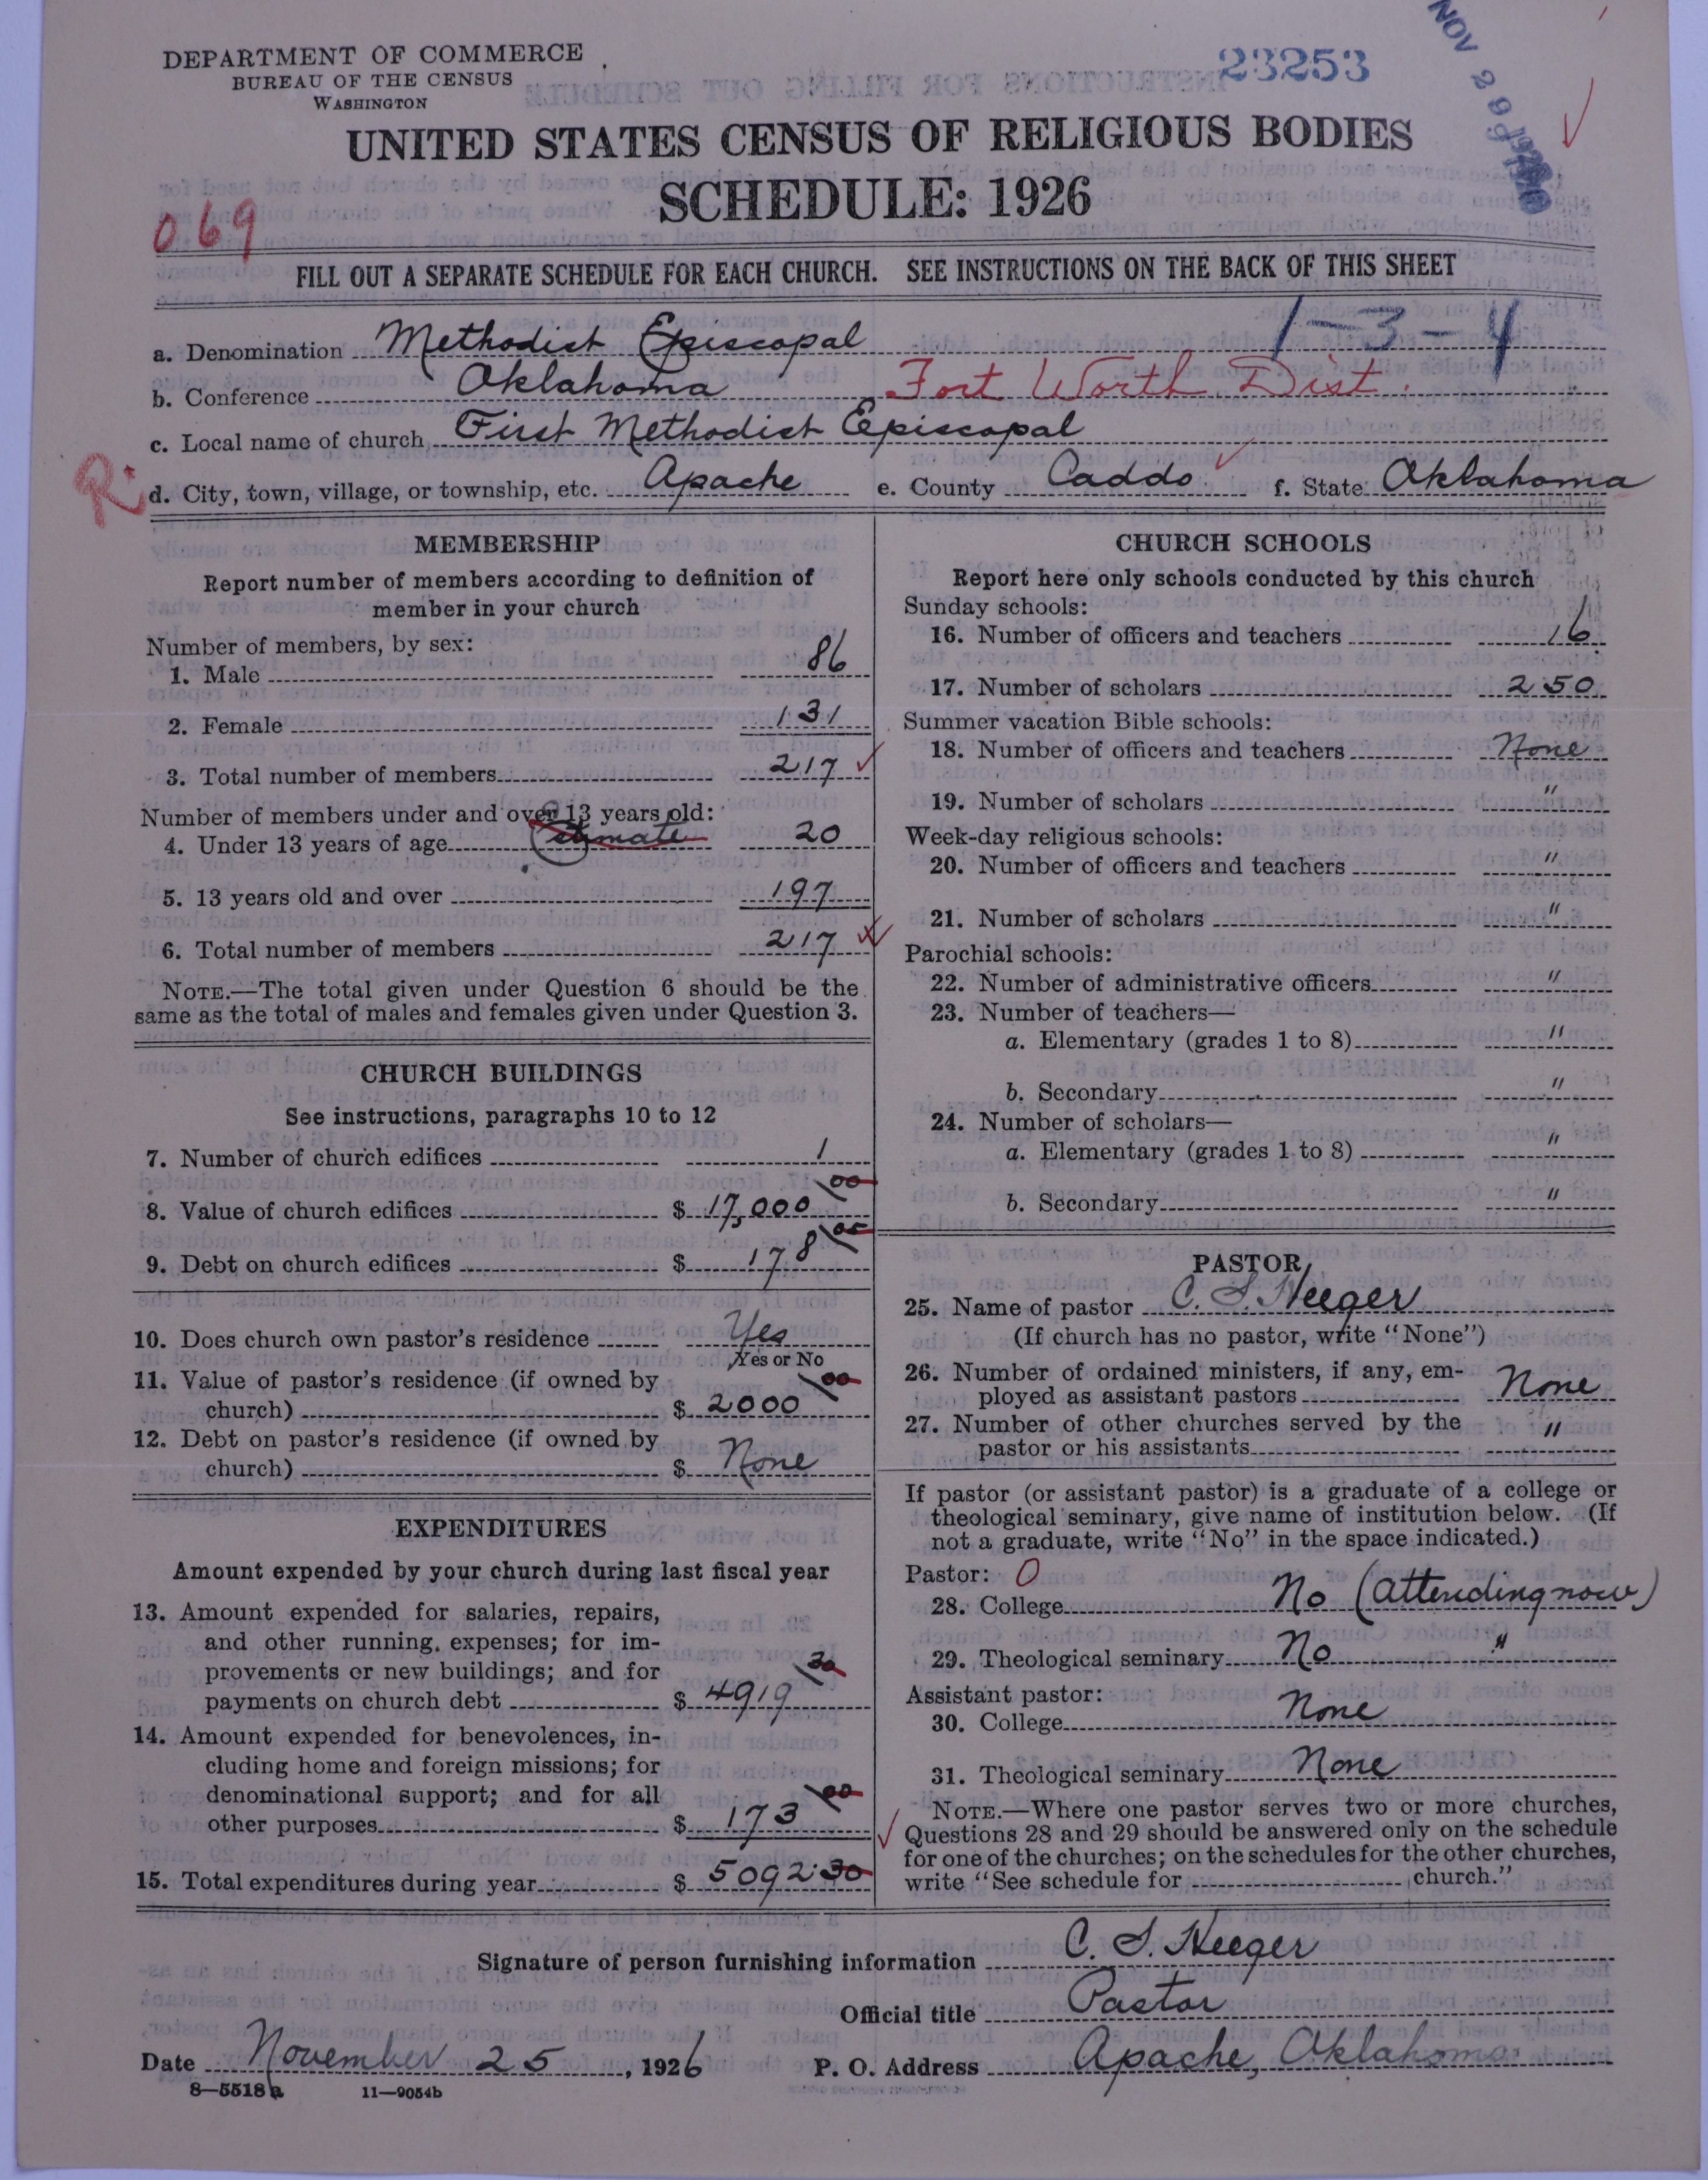 DEPARTMENT OF COMMERCE
BUREAU OF THE CENSUS
WASHINGTON
23253
NOV 29 1926
UNITED STATES CENSUS OF RELIGIOUS BODIES
SCHEDULE: 1926
069
FILL OUT A SEPARATE SCHEDULE FOR EACH CHURCH. SEE INSTRUCTIONS ON THE BACK OF THIS SHEET
1-3-4
a. Denomination Methodist Episcopal
b. Conference Oklahoma Fort Worth Dist.
c. Local name of church First Methodist Episcopal
R. d. City, town, village, or township, etc. Apache e. County Caddo f. State Oklahoma
MEMBERSHIP
Report number of members according to definition of
member in your church
Number of members, by sex:
1. Male 86
2. Female 131
3. Total number of members 217
Number of members under and over 13 years old:
4. Under 13 years of age estimate 20
5. 13 years old and over 197
6. Total number of members 217
NOTE.—The total given under Question 6 should be the
same as the total of males and females given under Question 3.
CHURCH BUILDINGS
See instructions, paragraphs 10 to 12
7. Number of church edifices 1
8. Value of church edifices $ 17,000 00
9. Debt on church edifices $ 178 00
10. Does church own pastor's residence Yes
Yes or No
11. Value of pastor's residence (if owned by
church) $ 2000 00
12. Debt on pastor's residence (if owned by
church) $ None
EXPENDITURES
Amount expended by your church during last fiscal year
13. Amount expended for salaries, repairs,
and other running expenses; for im-
provements or new buildings; and for
payments on church debt $ 4919 30
14. Amount expended for benevolences, in-
cluding home and foreign missions; for
denominational support; and for all
other purposes $ 173 00
15. Total expenditures during year $ 5092.30
CHURCH SCHOOLS
Report here only schools conducted by this church
Sunday schools:
16. Number of officers and teachers 16
17. Number of scholars 250
Summer vacation Bible schools:
18. Number of officers and teachers None
19. Number of scholars "
Week-day religious schools:
20. Number of officers and teachers "
21. Number of scholars "
Parochial schools:
22. Number of administrative officers "
23. Number of teachers—
a. Elementary (grades 1 to 8) "
b. Secondary "
24. Number of scholars—
a. Elementary (grades 1 to 8) "
b. Secondary "
PASTOR
25. Name of pastor C. S. Heeger
(If church has no pastor, write "None")
26. Number of ordained ministers, if any, em-
ployed as assistant pastors None
27. Number of other churches served by the
pastor or his assistants "
If pastor (or assistant pastor) is a graduate of a college or
theological seminary, give name of institution below. (If
not a graduate, write "No" in the space indicated.)
Pastor: 0
28. College No (attending now)
29. Theological seminary No "
Assistant pastor:
30. College None
31. Theological seminary None
NOTE.—Where one pastor serves two or more churches,
Questions 28 and 29 should be answered only on the schedule
for one of the churches; on the schedules for the other churches,
write "See schedule for church."
Signature of person furnishing information C. S. Heeger
Official title Pastor
Date November 25, 1926 P. O. Address Apache, Oklahoma
8-5518a 11-9054b